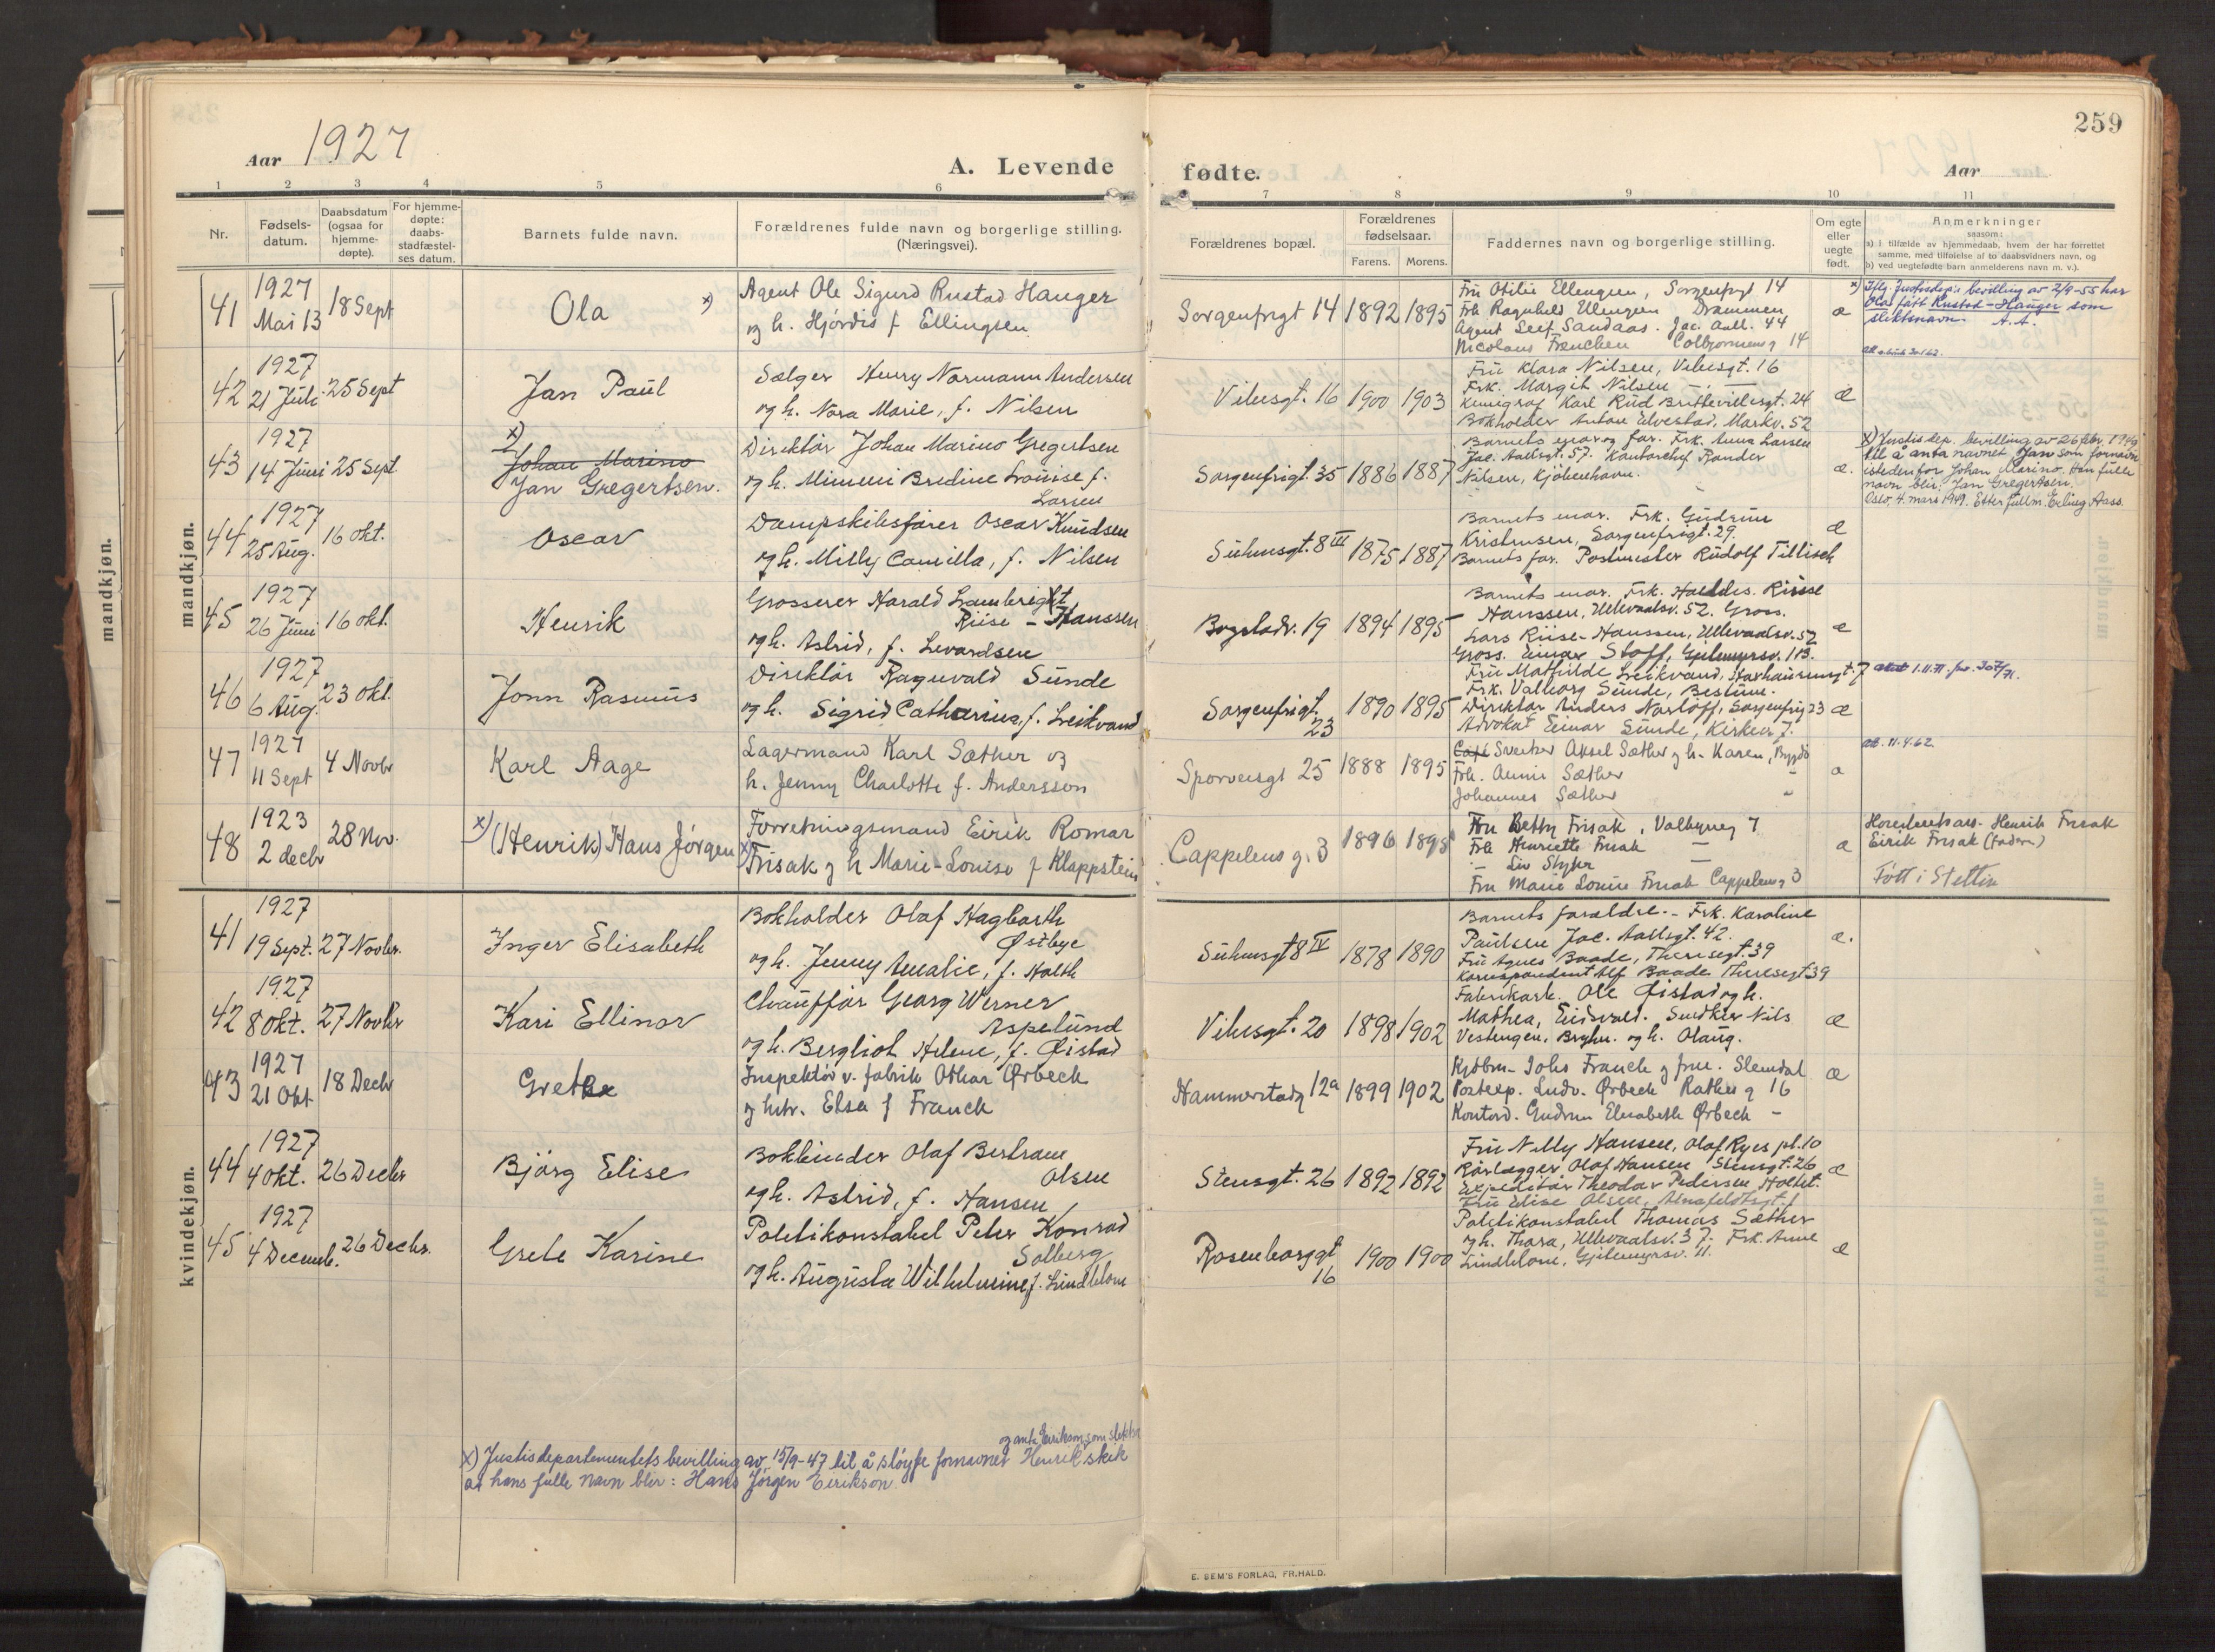 Aar 1927
A. Levende
1 2 3 4 5 6
Nr.
Fødsels-
datum.
Daabsdatum
(ogsaa for
hjemme-
døpte).
For hjemme-
døpte:
daabs-
stadfæstel-
ses datum.
Barnets fulde navn.
Forældrenes fulde navn og borgerlige stilling.
(Næringsvei).
mandkjøn.
mandkjøn.
41
1927
Mai 13
18 Sept
Ola x)
Agent Ole Sigurd Rustad Hauger
og h. Hjørdis f Ellingsen
42
1927
21 Juli
25 Sept
Jan Paul
Sælger Henry Normann Andersen
og h. Nora Marie, f. Nilsen
43
1927
14 Juni
25 Sept.
x)
Johan Marino
Jan Gregertsen.
Direktör Johan Marino Gregertsen
og h. Mimmi Bredine Louise f.
Larsen
44
1927
25 Aug.
16 okt.
Oscar
Dampskibsfører Oscar Knudsen
og h. Milly Camilla, f. Nilsen
45
1927
26 Juni
16 okt.
Henrik
Grosserer Harald Lambrigt
Riise - Hanssen
og h. Astrid, f. Levardsen
46
1927
6 Aug.
23 okt.
Jonn Rasmus
Direktör Ragnvald Sunde
og h. Sigrid Catharina, f. Leikvand
47
1927
11 Sept
4 Novbr
Karl Aage
Lagermand Karl Sæther og
h. Jenny Charlotte f. Andersson
48
1923
2 decbr
28 Nov.
x) (Henrik) Hans Jørgen
Forretningsmand Eirik Romar
x) Frisak og h Marie-Louise f Klappstein
kvindekjøn.
41
1927
19 Sept.
27 Novbr.
Inger Elisabeth
Bokholder Olaf Hagbarth
Østbye
og h. Jenny Amalie, f. Holth
42
1927
8 Okt.
27 Novbr
Kari Ellinor
Chauffør Georg Werner
Aspelund
og h. Bergliot Helene, f. Øistad
43
1927
21 Okt
18 Decbr
Grethe
Inspektör v. fabrik Othar Ørbeck
og hstr. Elsa f Franck
44
1927
4 okt.
26 Decbr
Bjørg Elise
Bokbinder Olaf Bertram
Olsen
og h. Astrid, f. Hansen
45
1927
4 Decemb.
26 Decbr.
Grete Karine
Politikonstabel Peter Konrad
Solberg
og h. Augusta Wilhelmine, f. Lindblom
og anta Eirikson som slektsn
x) Justisdepartementets bevilling av 15/9-47 til å sløyfe fornavnet Henrik slik
at hans fulle navn blir: Hans Jørgen Eirikson
259
fødte.
Aar
7 8 9 10 11
Forældrenes bopæl.
Forældrenes
fødselsaar.
Farens. Morens.
Faddernes navn og borgerlige stilling.
Om egte
eller
uegte
født.
Anmerkninger
saasom:
a) I tilfælde av hjemmedaab, hvem der har forrettet
samme, med tilføielse af to daabsvidners navn, og
b) ved uegtefødte barn anmelderens navn m. v.).
Sorgenfrigt 14 1892 1895
Fru Otilie Ellengsen, Sorgenfrgt 14
Frk. Ragnhild Ellengsen Drammen
Agent Leif Sandaas. Jac. Aall. 44
Nicolaus Frenchen Colbjørnsensg 14
æ
x) Iflg. Justisdep's bevilling av 2/9-55 har
Ola fått Rustad-Hauger som
slektsnavn. A.A.
Vibesgt. 16 1900 1903
Fru Klara Nilsen, Vibesgt. 16
Frk. Margith Nilsen — . —
Karl Rud 24
Bokholder Anton Elvestad, Markv. 52
æ
Sorgenfrigt. 35 1886 1887
Barnets mor og far. Frk. Anna Larsen
Jac. Aallsgt. 57. Kontorchef Rander
Nilsen, Kjöbenhavn.
æ.
x) Justisdep. bevilling av 26 febr. 1949
til å anta navnet Jan som fornavn
istedenfor Johan Marino. Han fulle
navn blir: Jan Gregertsen.
Oslo, 4. mars 1949. Etter fullm. Erling Aass.
Suhmsgt. 8 III 1875 1887
Barnets mor. Frk. Gudrun
Kristensen, Sorgenfrigt. 29.
Barnets far. Postmester Rudolf Tillisch
æ
Bogstadv. 19 1894 1895
Barnets mor. Frk. Riise
- Hanssen, Ullevaalsv. 52. Gross.
Lars Riise-Hanssen, Ullevaalsv. 52
Gross. Einar Stoff, Gjetemyrsv. 113.
æ
Sorgenfrigt.
23
1890 1895
Fru Mathilde Leikvand, 7
Frk. Valborg Sunde, Bestum.
Direktör Anders Narloff, Sorgenfrig 23
Advokat Einar Sunde, Kirkev 7.
æ
1.11.71.
Sporveisgt 25 1888 1895
Snekker Aksel Sæther og h. Karen, Bygdø
Frk. Annie Sæther -
Johannes Sæther -
æ
att. 11.4.62.
Cappelens g. 3 1896 1895
Fru Betty Frisak, Valbyveg 7
Frk Henriette Frisak —
— Liv Styfer —
Fru Marie Louise Frisak Cappelensg 3
æ
Henrik Frisak
Eirik Frisak (Faderen)
Født i Stettin
Suhmsgt 8 IV 1878 1890
Barnets foreldre. - Frk. Karoline
Paulsen Jac. Aallsgt. 42.
Fru Agnes Baade, Theresegt. 39
Korrespondent Alf Baade Theresegt 39
æ.
Vibesgt. 20 1898 1902
Fabrikarb. Ole Øistad og h.
Mathea, Eidsvold. Snedker Nils
Vestengen, Bryhn. og h. Olaug.
æ
Hammerstadg 12a 1899 1902
Kjøbm. Johs Franck og frue. Slemdal
Postexp. Ludv. Ørbeck Rathkes g 16
Kontord. Gudrun Elisabeth Ørbeck -
æ
Stensgt. 26 1892 1892
Fru Nelly Hansen, Olaf Ryes pl. 10
Rørlægger Olaf Hansen Stensgt. 26
Expeditör Theodor Pedersen Holtet.
Fru Elise Olsen,
æ
Rosenborggt
16
1900 1900
Politikonstabel Thomas Sæther
og h. Thora, Ullevaalsv. 37. Frk. Anne
Lindblom, Gjetemyrsv. 11.
æ
E. SEM'S FORLAG, FR.HALD.